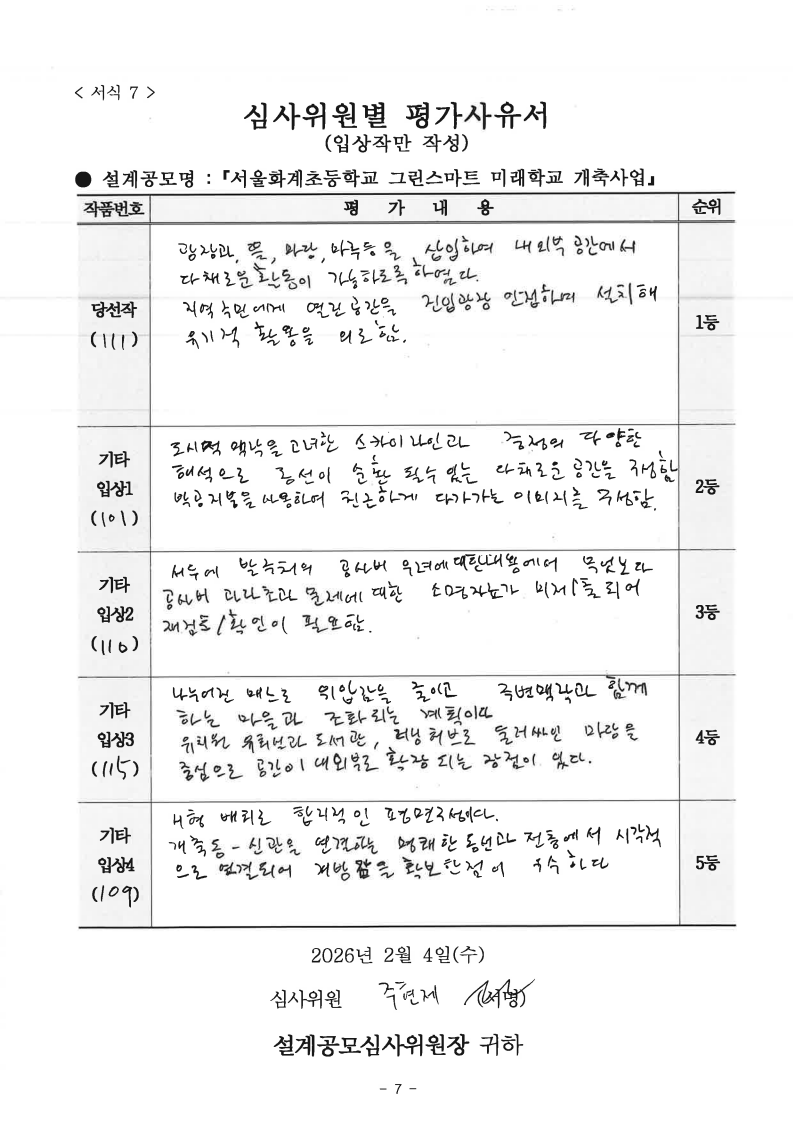 < 서식 7 >
심사위원별 평가사유서
(입상작만 작성)
● 설계공모명 : 『서울화계초등학교 그린스마트 미래학교 개축사업』
작품번호 평 가 내 용 순위
당선작
(111)
광장과, 뜰, 마당, 마루등을 삽입하여 내외부 공간에서
다채로운 활동이 가능하도록 하였다.
지역주민에게 열린공간을 진입광장 인접하여 설치해
유기적 활용을 의도함.
1등
기타
입상1
(101)
도시적 맥락을 고려한 스카이라인과 중정의 다양한
해석으로 동선이 순환 될수 있는 다채로운 공간을 구성함
박공지붕을 사용하여 친근하게 다가가는 이미지를 구성함.
2등
기타
입상2
(110)
서두에 발주처의 공사비 우려에 대한 내용에서 무엇보다
공사비 과다초과 문제에 대한 소명자료가 미제출 되어
재검토/확인이 필요함.
3등
기타
입상3
(115)
나누어진 매스로 위압감을 줄이고 주변맥락과 함께
하는 마을과 조화되는 계획이다
유치원 도서관, 러닝허브로 둘러싸인 마당을
중심으로 공간이 내외부로 확장 되는 장점이 있다.
4등
기타
입상4
(109)
배치로 합리적인 평면구성이다.
개축동-신관을 연결하는 명쾌한 동선과 전층에서 시각적
으로 연결되어 개방감을 확보한점이 우수하다
5등
2026년 2월 4일(수)
심사위원 주현제 (서명)
설계공모심사위원장 귀하
- 7 -